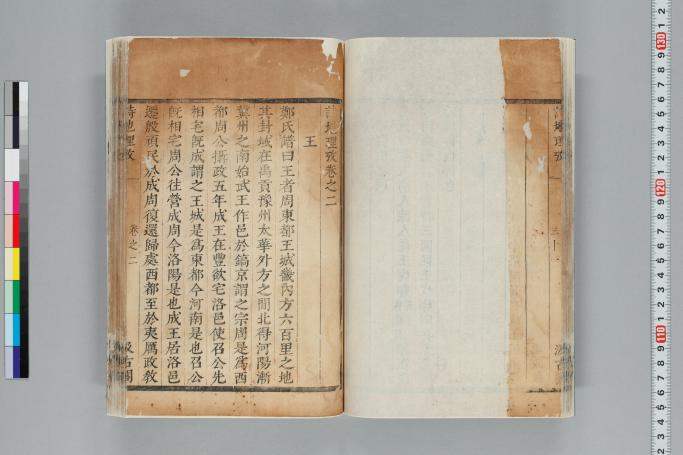 詩地理攷卷之二
王
鄭氏譜曰王者周東都王城畿內方六百里之地
其封域在禹貢豫州太華外方之間北得河陽漸
冀州之南始武王作邑於鎬京謂之宗周是爲西
都周公攝政五年成王在豐欲宅洛邑使召公先
相宅旣成謂之王城是爲東都今河南是也召公
旣相宅周公往營成周今洛陽是也成王居洛邑
遷殷頑民於成周復還歸處西都至於夷厲政敎
詩地理攷
卷之二
汲古閣